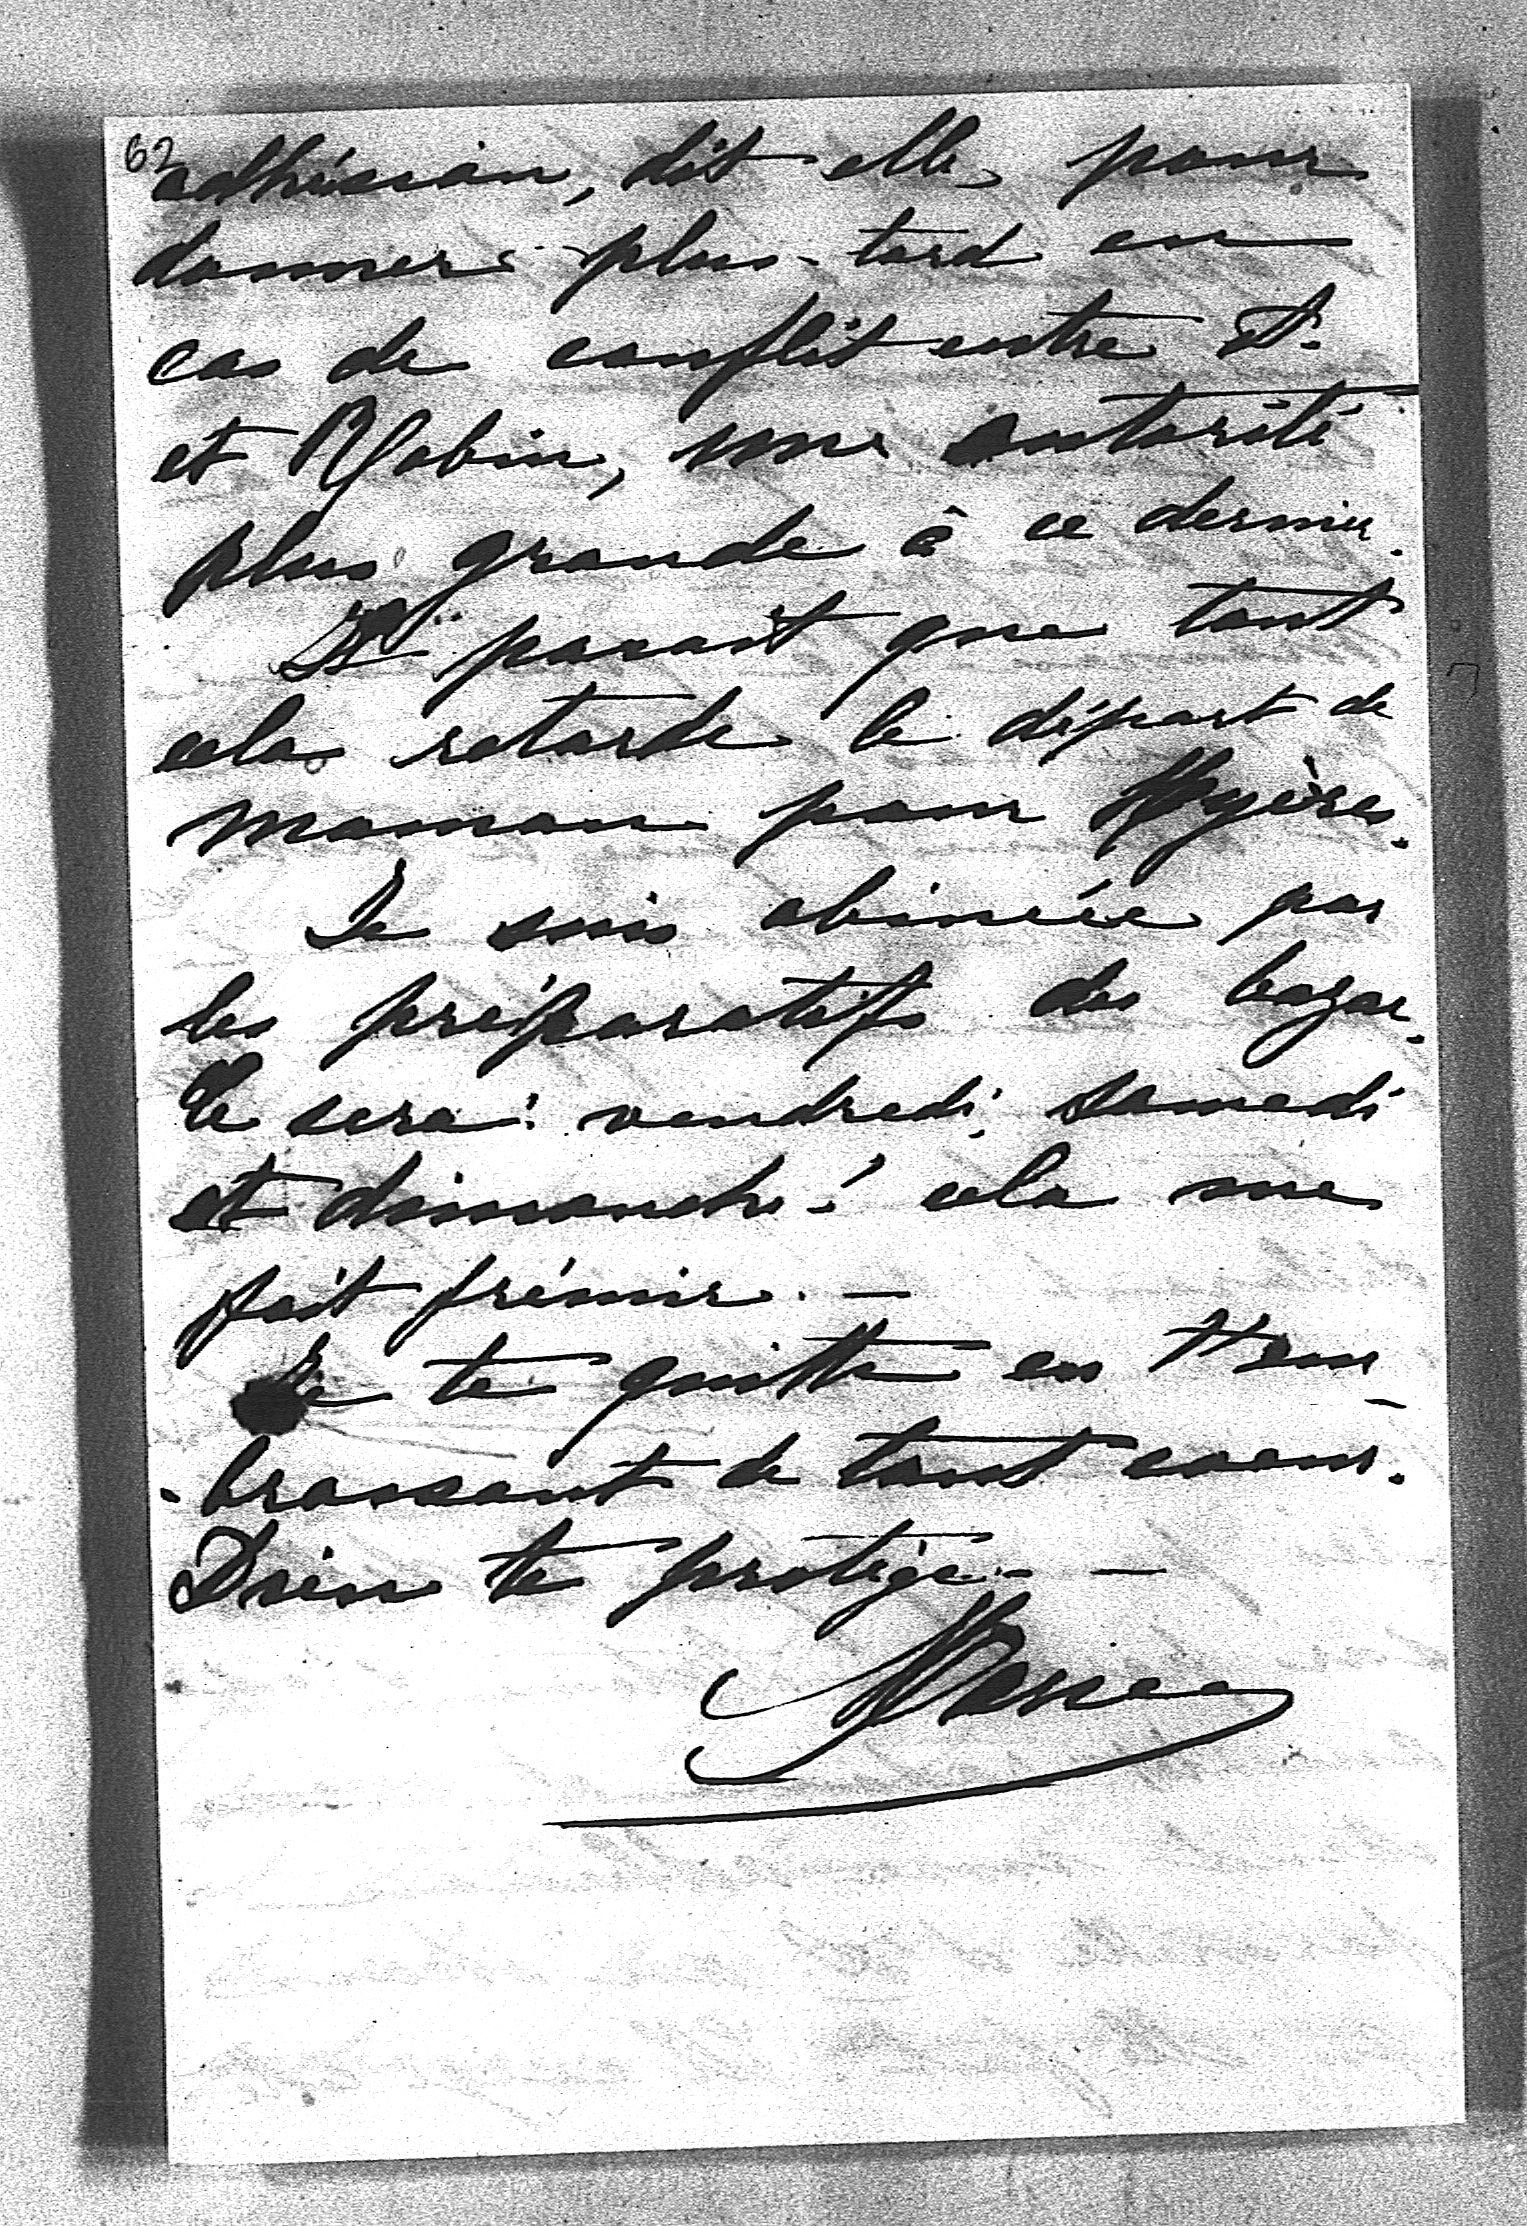 62
adhésion, dit elle, pour
donner plus-tard en
cas de conflit entre D.
et Yabin, une autorité
plus grande à ce dernier.
Il parait que tout
cela retarde le départ de
maman pour Hyères.
Je suis abimée par
les préparatifs du bazar.
Ce sera vendredi, samedi
et dimanche! cela me
fait frémir. —
Je te quitte en t'em
-brassant de tout coeur.
Dieu te protège. —